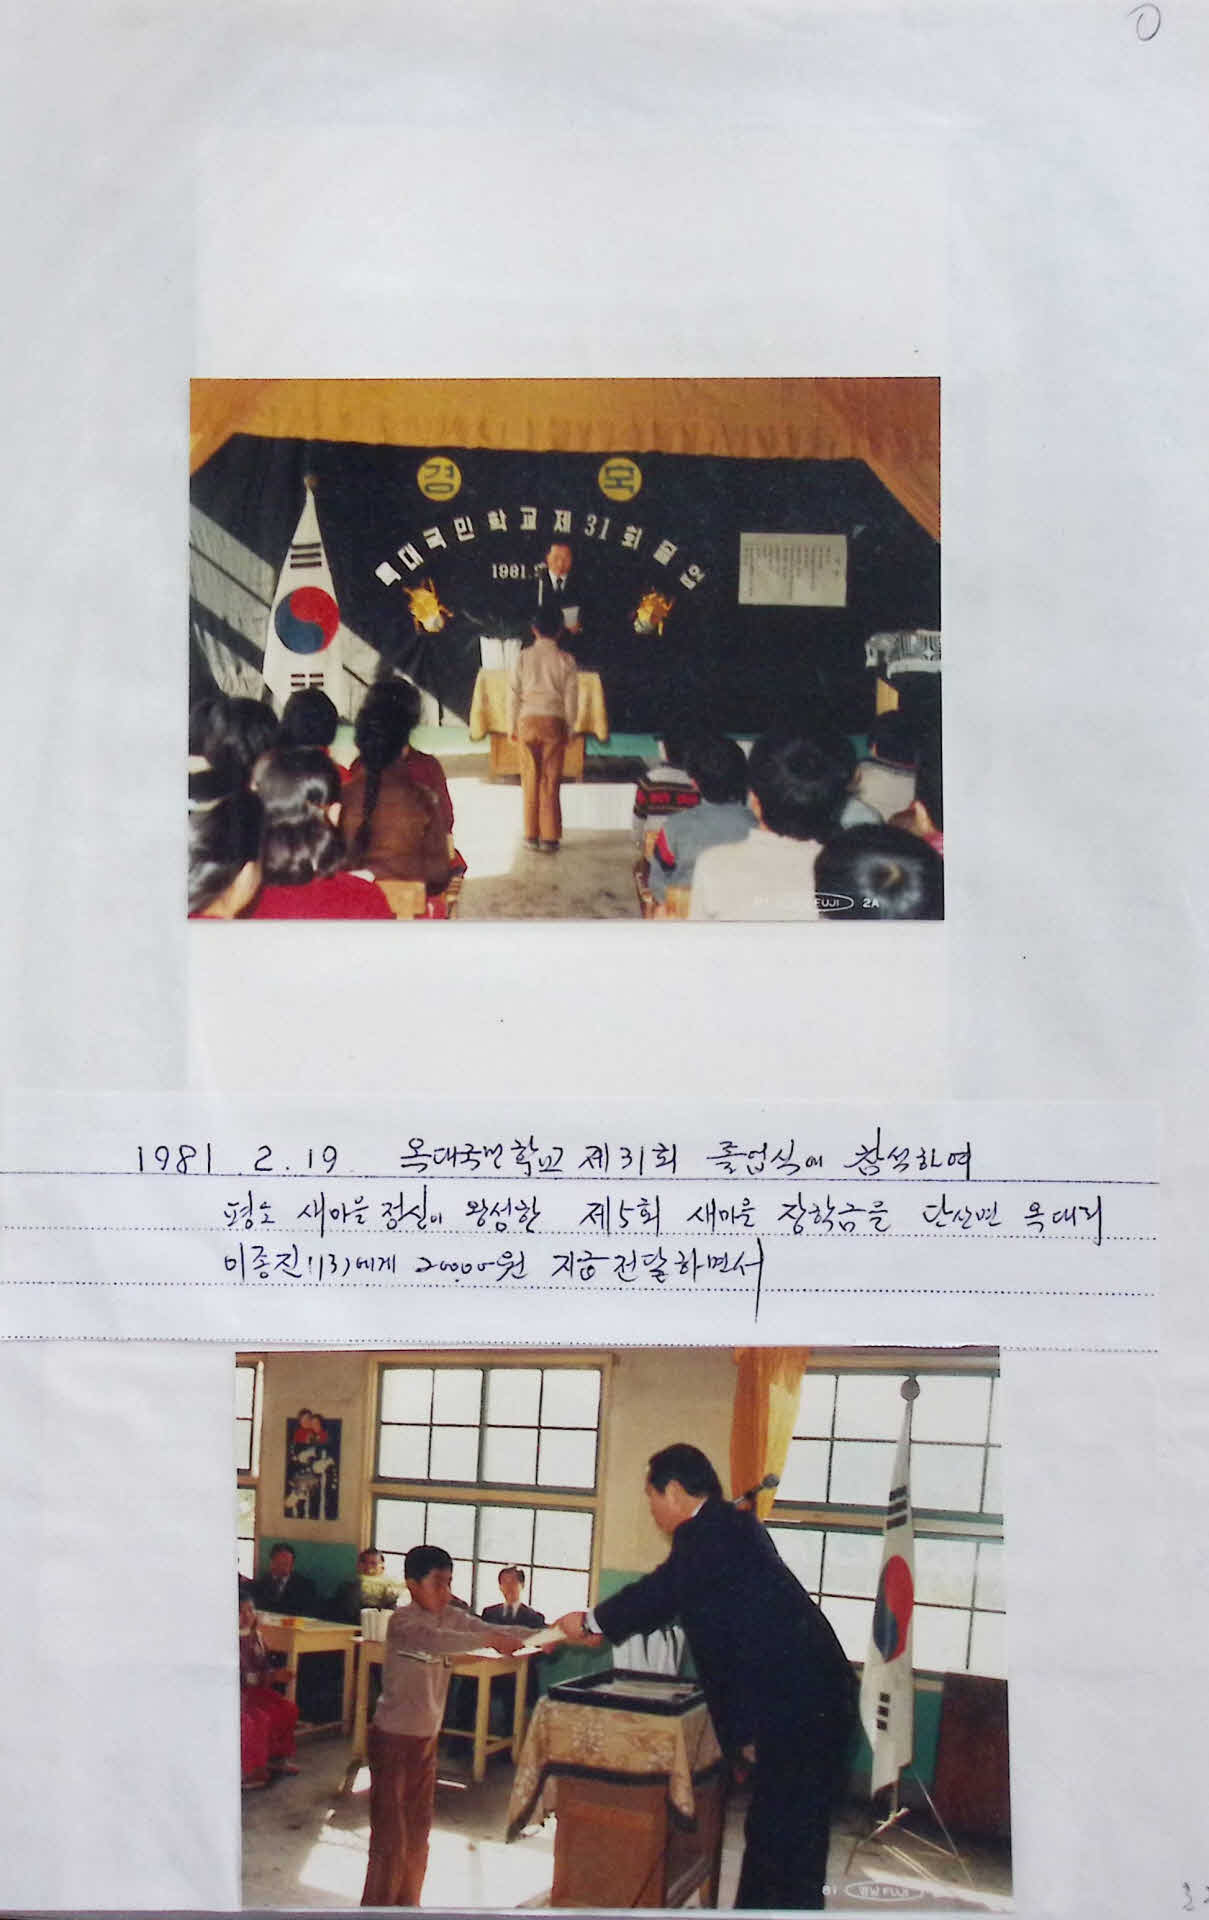 경 목
옥대국민학교제31회졸업
1981.2
FUJI 2A
1981. 2. 19 옥대국민학교 제31회 졸업식에 참석하여
평소 새마을정신이 왕성한 제5회 새마을 장학금을 단산면 옥대리
이종진(13)에게 20000원 지급 전달하면서
81 NEW FUJI